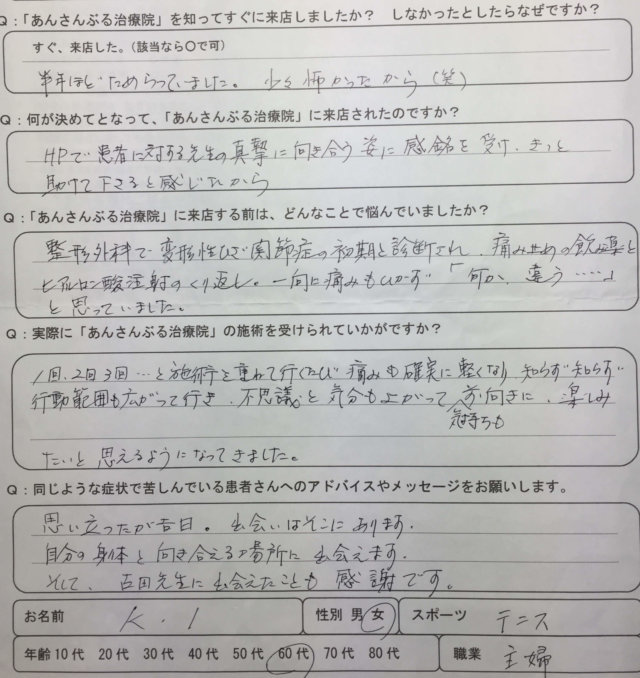 Q：「あんさんぶる治療院」を知ってすぐに来店しましたか？　しなかったとしたらなぜですか？
すぐ、来店した。（該当なら〇で可）
半年ほどためらっていました。少々怖かったから（笑）
Q：何が決めてとなって、「あんさんぶる治療院」に来店されたのですか？
HPで患者に対する先生の真摯に向き合う姿に感銘を受け、きっと
助けて下さると感じたから
Q：「あんさんぶる治療院」に来店する前は、どんなことで悩んでいましたか？
整形外科で変形性ひざ関節症の初期と診断され、痛み止めの飲み薬と
ヒアルロン酸注射のくり返し。一向に痛みもひかず「何か、違う……」
と思っていました。
Q：実際に「あんさんぶる治療院」の施術を受けられていかがですか？
1回、2回3回…と施術を重ねて行くたび痛みも確実に軽くなり、知らず知らず
行動範囲も広がって行き、不思議と気分も上がって前向きに、楽しみ
気持ちも
たいと思えるようになってきました。
Q：同じような症状で苦しんでいる患者さんへのアドバイスやメッセージをお願いします。
思い立ったが吉日。出会いはそこにあります。
自分の身体と向き合える場所に出会えます。
そして、吉田先生に出会えたことも感謝です。
お名前　K.I　性別 男 女　スポーツ　テニス
年齢 10代　20代　30代　40代　50代　60代　70代　80代　職業　主婦